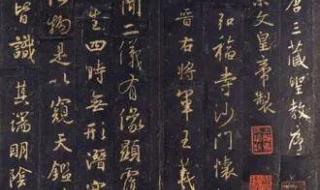 唐三藏聖教序
宗文皇帝製
弘福寺沙門懷
晉右將軍王羲
聞二儀有像顯覆
生四時無形潛寒
化物是以窺天鑑
皆識其端明陰